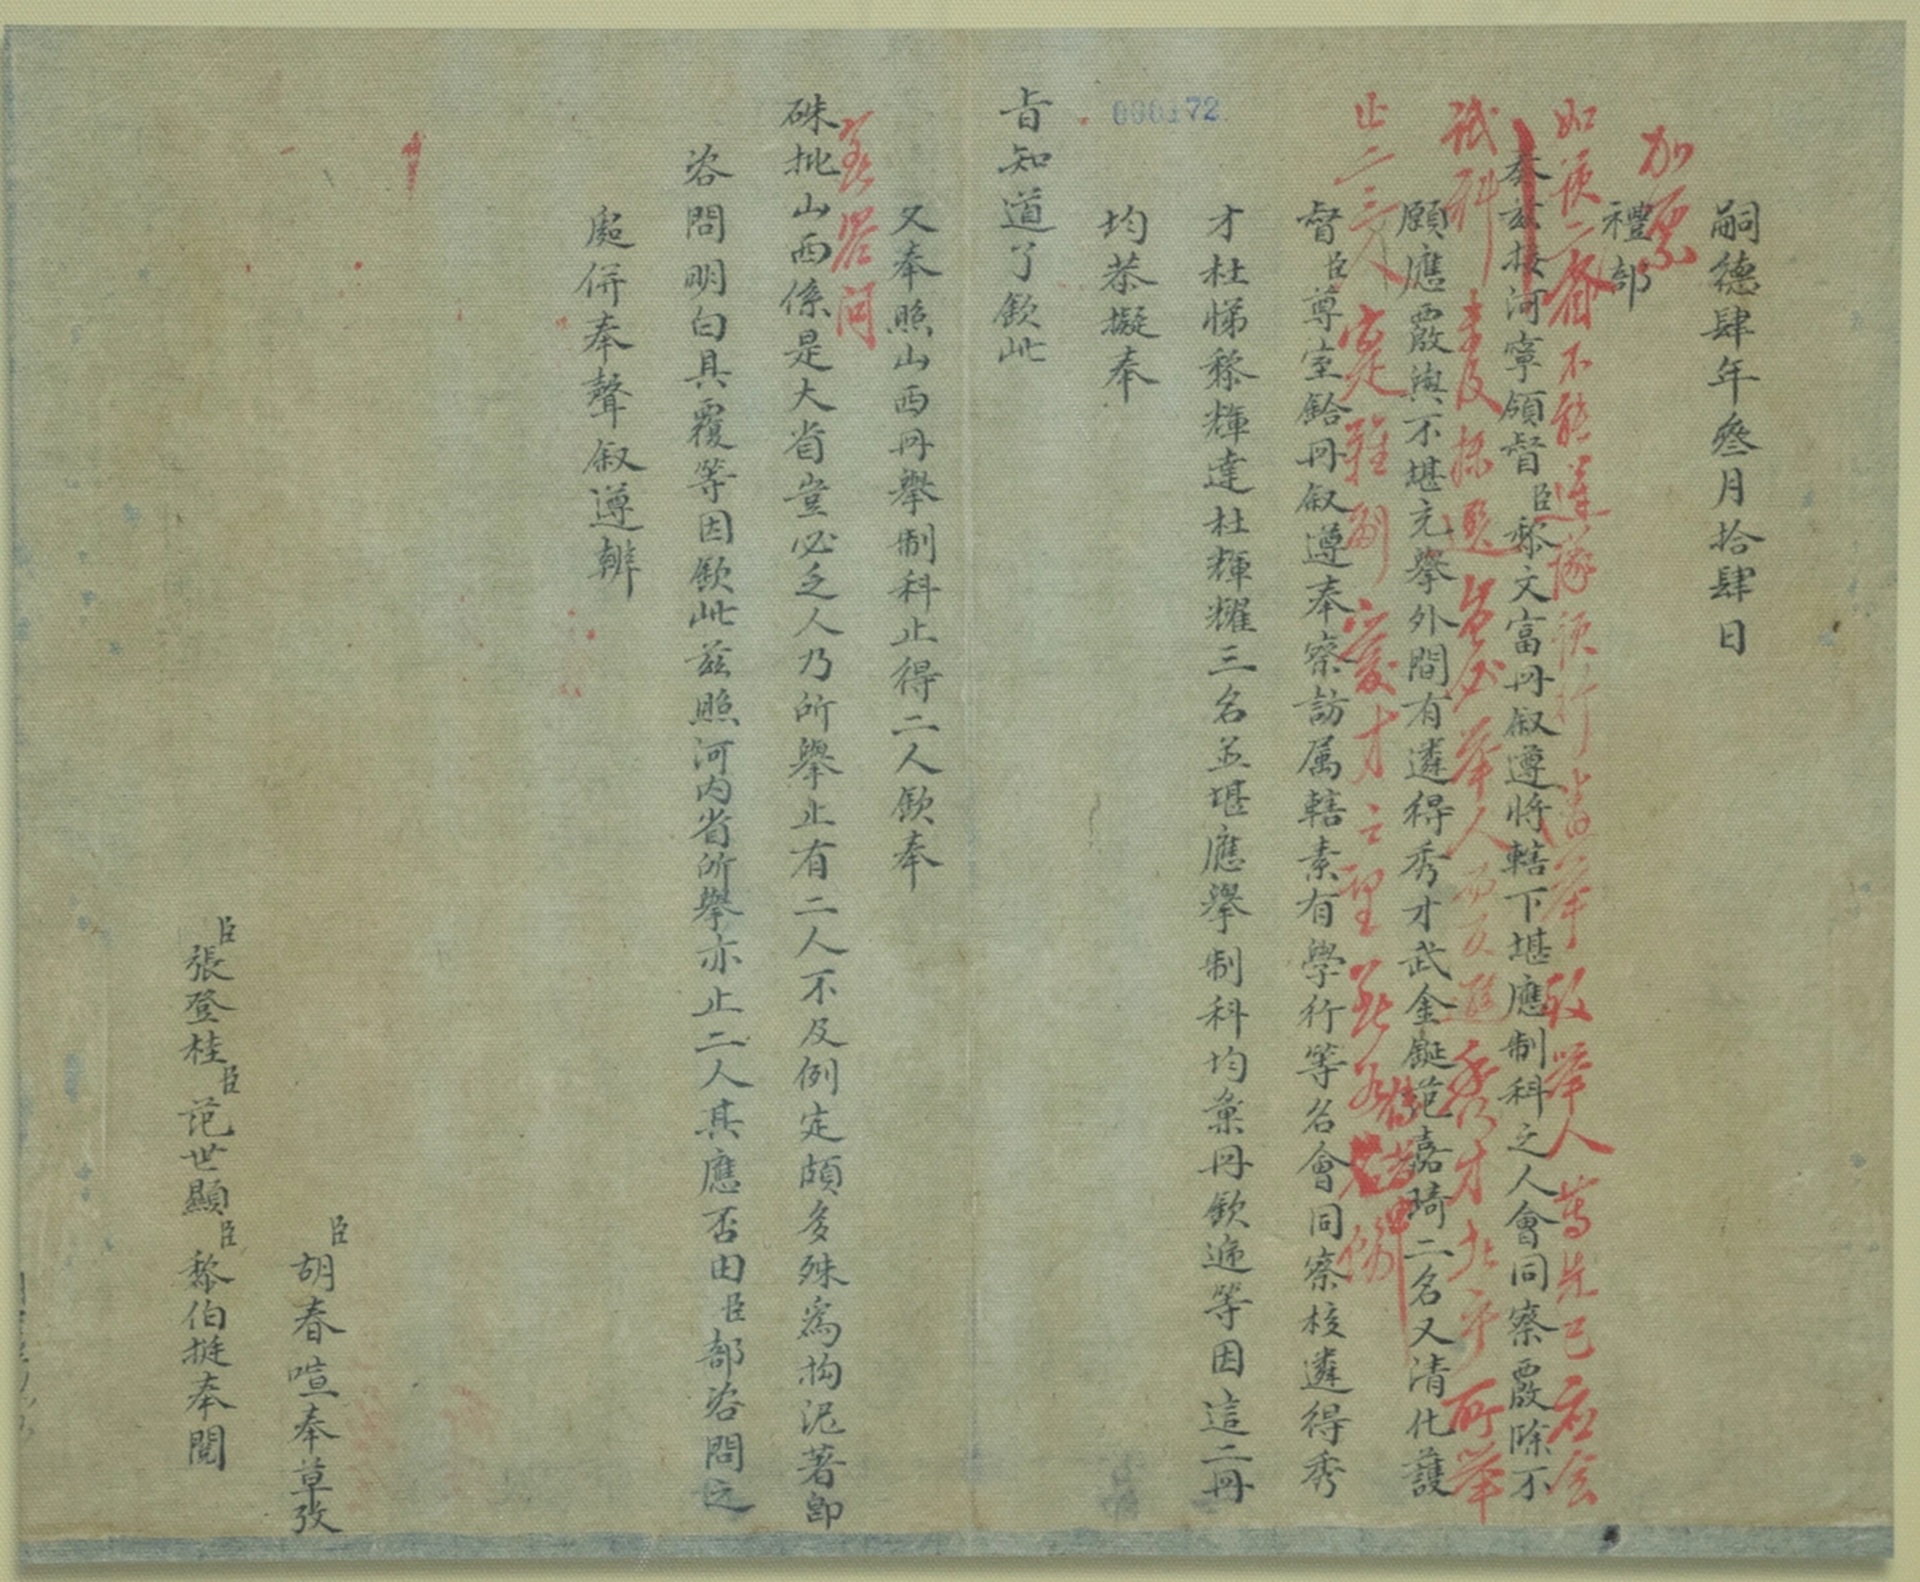 嗣德肆年叁月拾肆日
加票
禮部
奏茲接河寧領督臣黎文富冊叙遵將轄下堪應制科之人會同察覈除不
願應覈與不堪充舉外間有遴得秀才武金鋌范嘉琦二名又清化護
督臣尊室鉿冊叙遵奉察訪属轄素有學行等名會同察核遴得秀
才杜悌黎輝達杜輝耀三名並堪應舉制科均彙冊欽遞等因這二冊
均恭擬奉
旨知道了欽此
又奉照山西冊舉制科止得二人欽奉
硃批山西係是大省豈必乏人乃所舉止有二人不及例定頗多殊為拘泥著即
咨問明白具覆等因欽此茲照河内省所舉亦止二人其應否由臣部咨問之
處併奉聲叙遵辦
臣胡春喧奉草攷
臣張登桂臣范世顯臣黎伯挺奉閱
如使二省不能
試科未及採選豈必舉人而又進秀才
所舉
止二三人寔難副愛才之聖
並咨問
000172